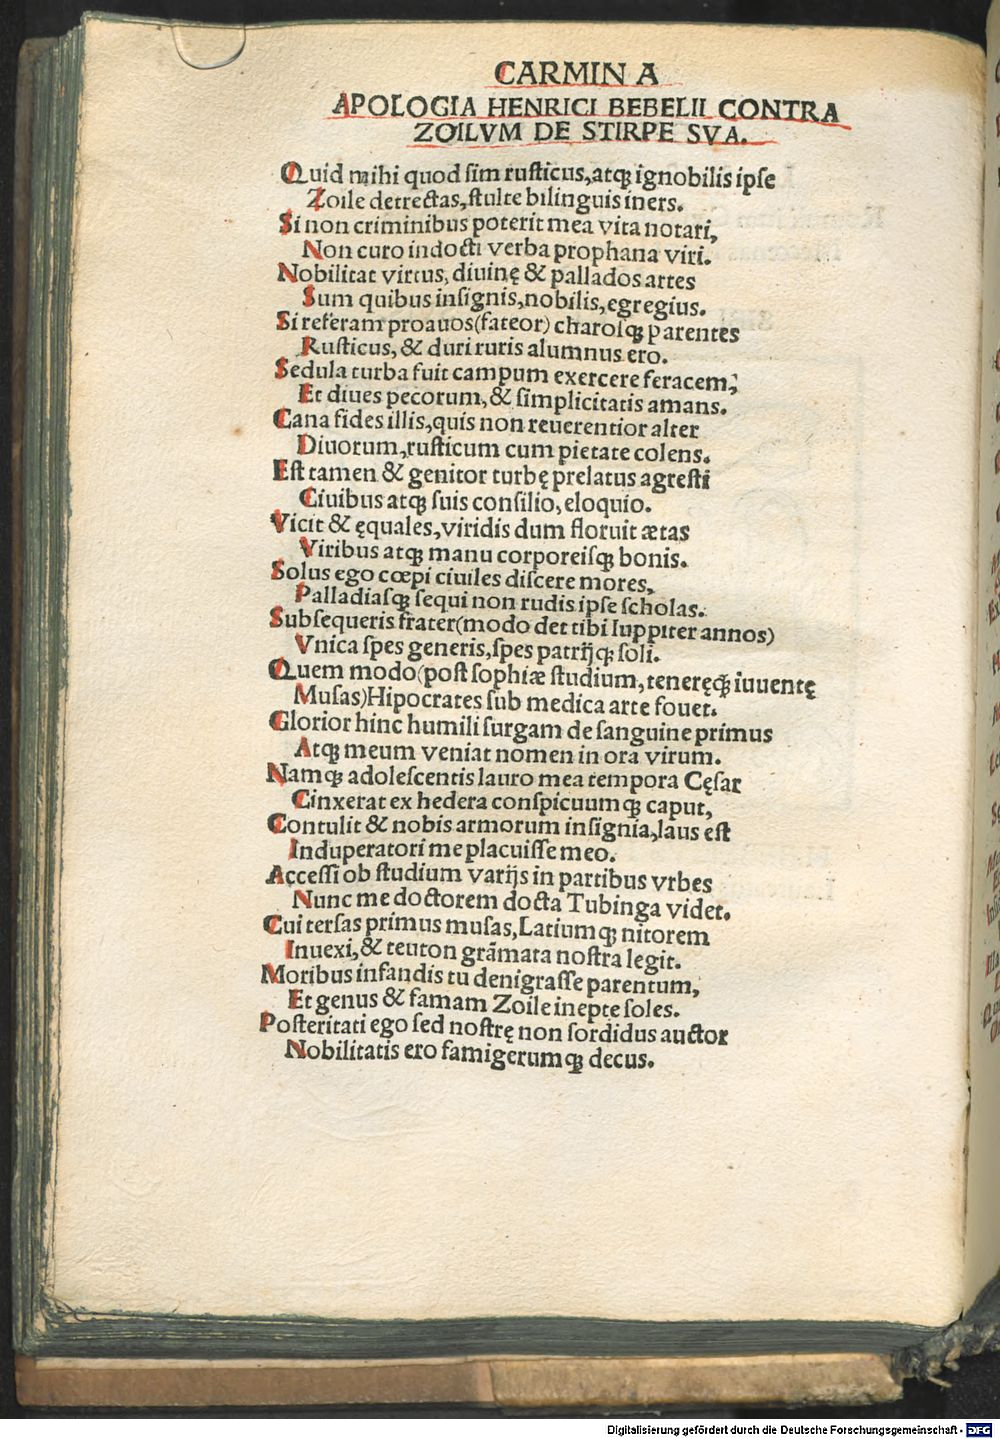 CARMINA
APOLOGIA HENRICI BEBELII CONTRA
ZOILVM DE STIRPE SVA.
Quid mihi quod sim rusticus, atqꝫ ignobilis ipse
Zoile detrectas, stulte bilinguis iners.
Si non criminibus poterit mea vita notari,
Non curo indocti verba prophana viri.
Nobilitat virtus, diuinę & pallados artes
Sum quibus insignis, nobilis, egregius.
Si referam proauos (fateor) charosqꝫ parentes
Rusticus, & duri ruris alumnus ero.
Sedula turba fuit campum exercere feracem,
Et diues pecorum, & simplicitatis amans.
Cana fides illis, quis non reuerentior alter
Diuorum, rusticum cum pietate colens.
Est tamen & genitor turbę prelatus agresti
Ciuibus atqꝫ suis consilio, eloquio.
Vicit & ęquales, viridis dum floruit ætas
Viribus atqꝫ manu corporeisqꝫ bonis.
Solus ego cœpi ciuiles discere mores,
Palladiasqꝫ sequi non rudis ipse scholas.
Subsequeris frater (modo det tibi Iuppiter annos)
Vnica spes generis, spes patrijqꝫ soli.
Quem modo (post sophiæ studium, teneręqꝫ iuuentę
Musas) Hipocrates sub medica arte fouet.
Glorior hinc humili surgam de sanguine primus
Atqꝫ meum veniat nomen in ora virum.
Namqꝫ adolescentis lauro mea tempora Cęsar
Cinxerat ex hedera conspicuumqꝫ caput,
Contulit & nobis armorum insignia, laus est
Induperatori me placuisse meo.
Accessi ob studium varijs in partibus vrbes
Nunc me doctorem docta Tubinga videt.
Cui tersas primus musas, Latiumqꝫ nitorem
Inuexi, & teuton grãmata nostra legit.
Moribus infandis tu denigrasse parentum,
Et genus & famam Zoile inepte soles.
Posteritati ego sed nostrę non sordidus auctor
Nobilitatis ero famigerumqꝫ decus.
Digitalisierung gefördert durch die Deutsche Forschungsgemeinschaft - DFG